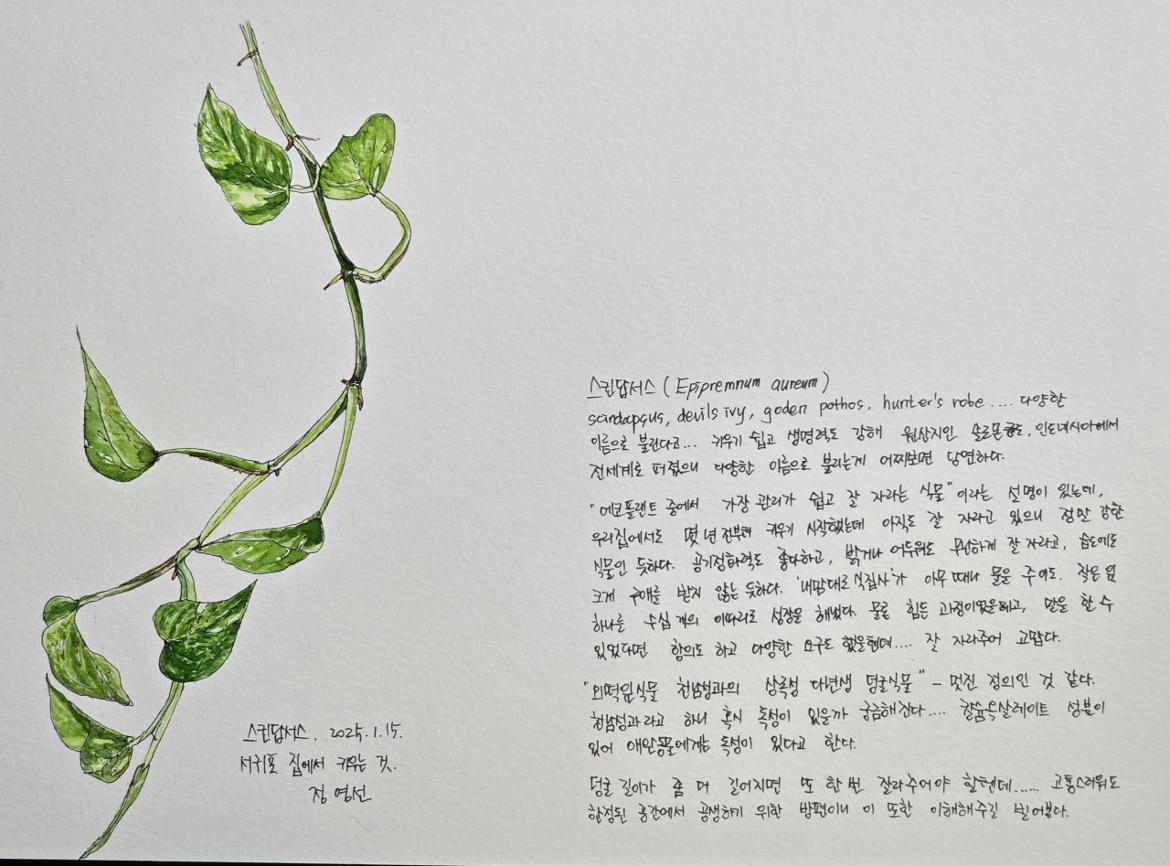 스킨답서스 (Epipremnum aureum)
scindapsus, devils ivy, goden pothos, hunter's robe .... 다양한
이름으로 불린다고... 키우기 쉽고 생명력도 강해 원산지인 솔로몬 인도네시아에서
전세계로 퍼졌으니 다양한 이름으로 불리는게 어찌보면 당연하다.
"에코플랜트 중에서 가장 관리가 쉽고 잘 자라는 식물"이라는 설명이 있는데,
우리집에서도 몇 년 전부터 키우기 시작했는데 아직도 잘 자라고 있으니 정말 강한
식물인 듯하다. 공기정화력도 좋다하고, 밝거나 어두워도 무난하게 잘 자라고, 습도에도
크게 구애를 받지 않는 듯하다. '내맘대로 식집사'가 아무 때나 물을 주어도. 작은 잎
하나를 수십 개의 이파리로 성장을 해냈다. 물론 힘든 과정이었을테고, 말을 한 수
있었다면 항의도 하고 다양한 요구도 했을텐데.... 잘 자라주어 고맙다.
"외떡잎식물 천남성과의 상록성 다년생 덩굴식물" - 멋진 정의인 것 같다.
천남성과라고 하니 혹시 독성이 있을까 궁금해진다.... 칼슘옥살레이트 성분이
있어 애완동물에게는 독성이 있다고 한다.
덩굴 길이가 좀 더 길어지면 또 한번 잘라주어야 할텐데...... 고통스러워도
한정된 공간에서 공생하기 위한 방편이니 이 또한 이해해주길 빌어본다.
스킨답서스. 2025.1.15.
서귀포 집에서 키우는 것.
정영선